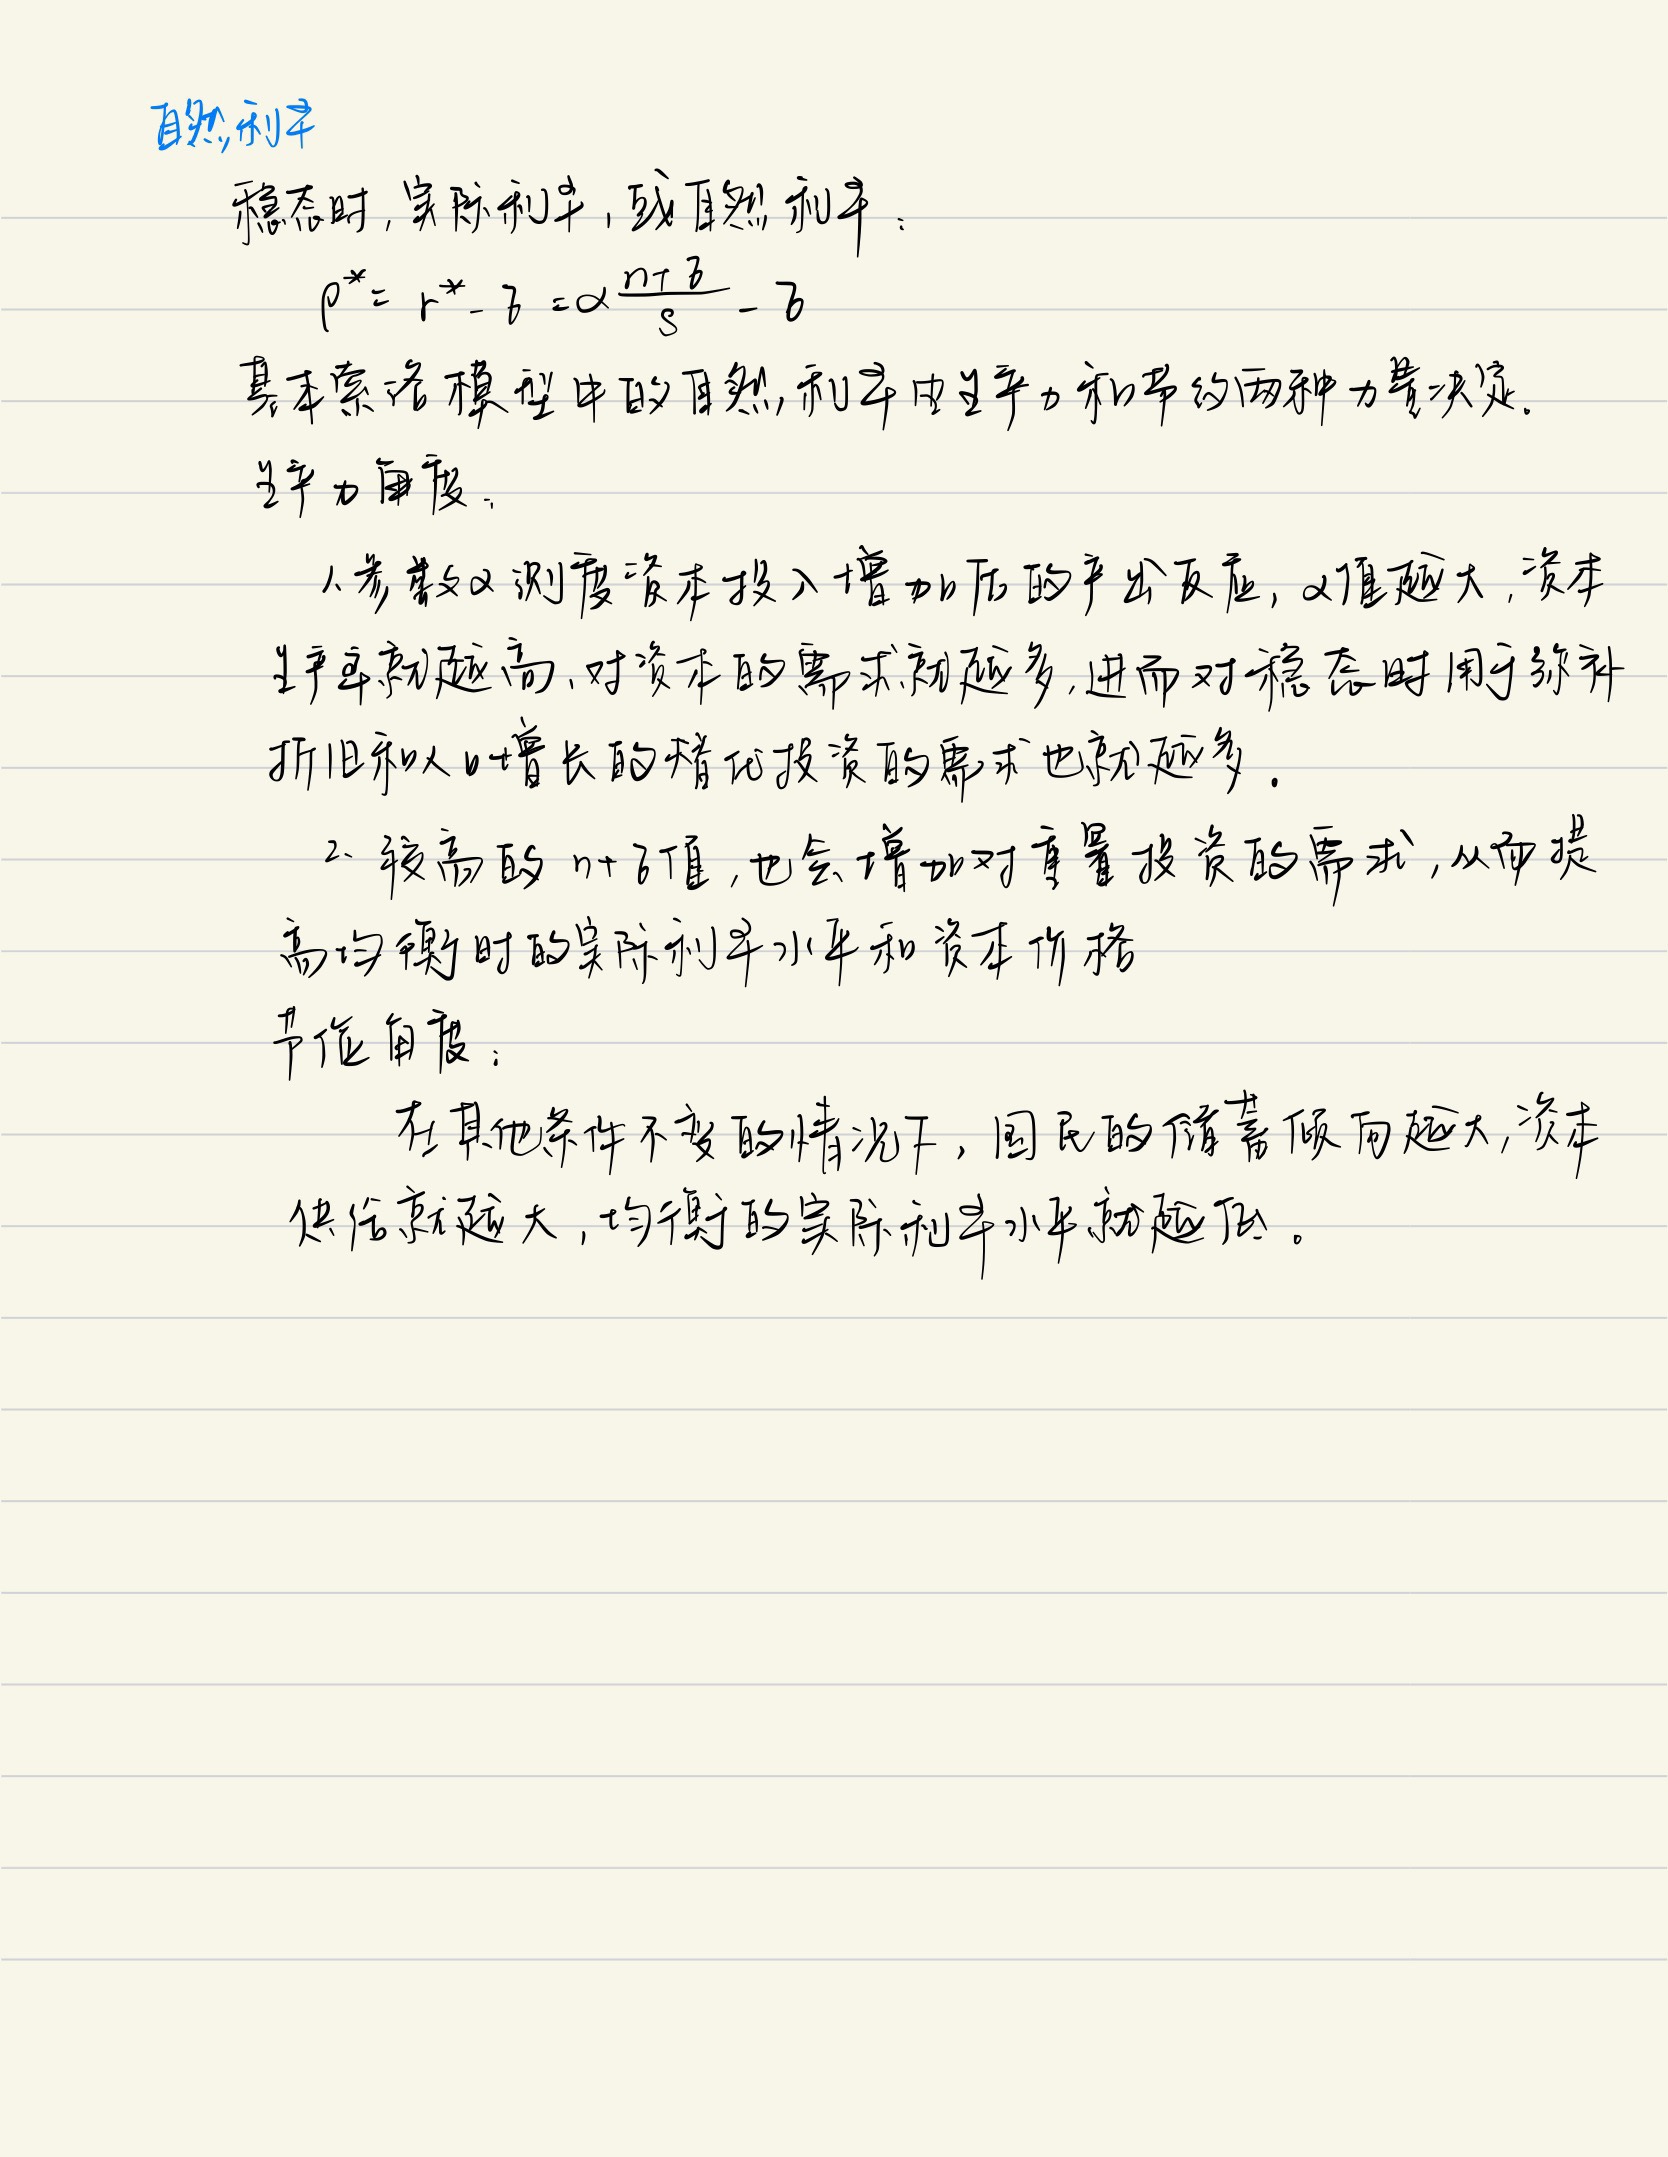 自然利率
稳态时,实际利率,或自然利率:
ρ* = r* - δ = α (n+δ)/s - δ
基本索洛模型中的自然利率由生产力和节约两种力量决定。
生产力角度:
1、参数α测度资本投入增加后的产出反应,α值越大,资本
生产率就越高、对资本的需求就越多,进而对稳态时用于弥补
折旧和人口增长的替代投资的需求也就越多.
2、较高的n+δ值,也会增加对重置投资的需求,从而提
高均衡时的实际利率水平和资本价格
节俭角度:
在其他条件不变的情况下,国民的储蓄倾向越大,资本
供给就越大,均衡的实际利率水平就越低。